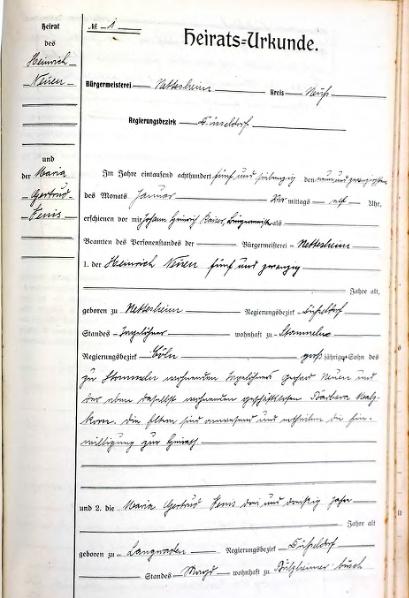 Heirat
des
Heinrich
Neuen
und
der Maria
Gertrud
Penis
№ 1
Heirats-Urkunde.
Bürgermeisterei Nettesheim Kreis Neuß
Regierungsbezirk Düsseldorf
Im Jahre eintausend achthundert fünf und siebenzig den neun und zwanzigsten
des Monats Januar Vor mittags elf Uhr,
erschienen vor mir Johann Heinrich Bürgermeister als
Beamten des Personenstandes der Bürgermeisterei Nettesheim
1. der Heinrich Neuen fünf und zwanzig
Jahre alt,
geboren zu Nettesheim Regierungsbezirk Düsseldorf
Standes Tagelöhner wohnhaft zu Stommeln
Regierungsbezirk Cöln groß jähriger Sohn des
zu Stommeln wohnenden Tagelöhners Gerhard Neuen und
der eben daselbst wohnenden geschäftslosen Barbara
Die Eltern sind anwesend und ertheilen die Ein-
willigung zur Heirath
und 2. die Maria Gertrud Penis drei und dreißig Jahre
Jahre alt
geboren zu Langwaden Regierungsbezirk Düsseldorf
Standes Magd wohnhaft zu busch